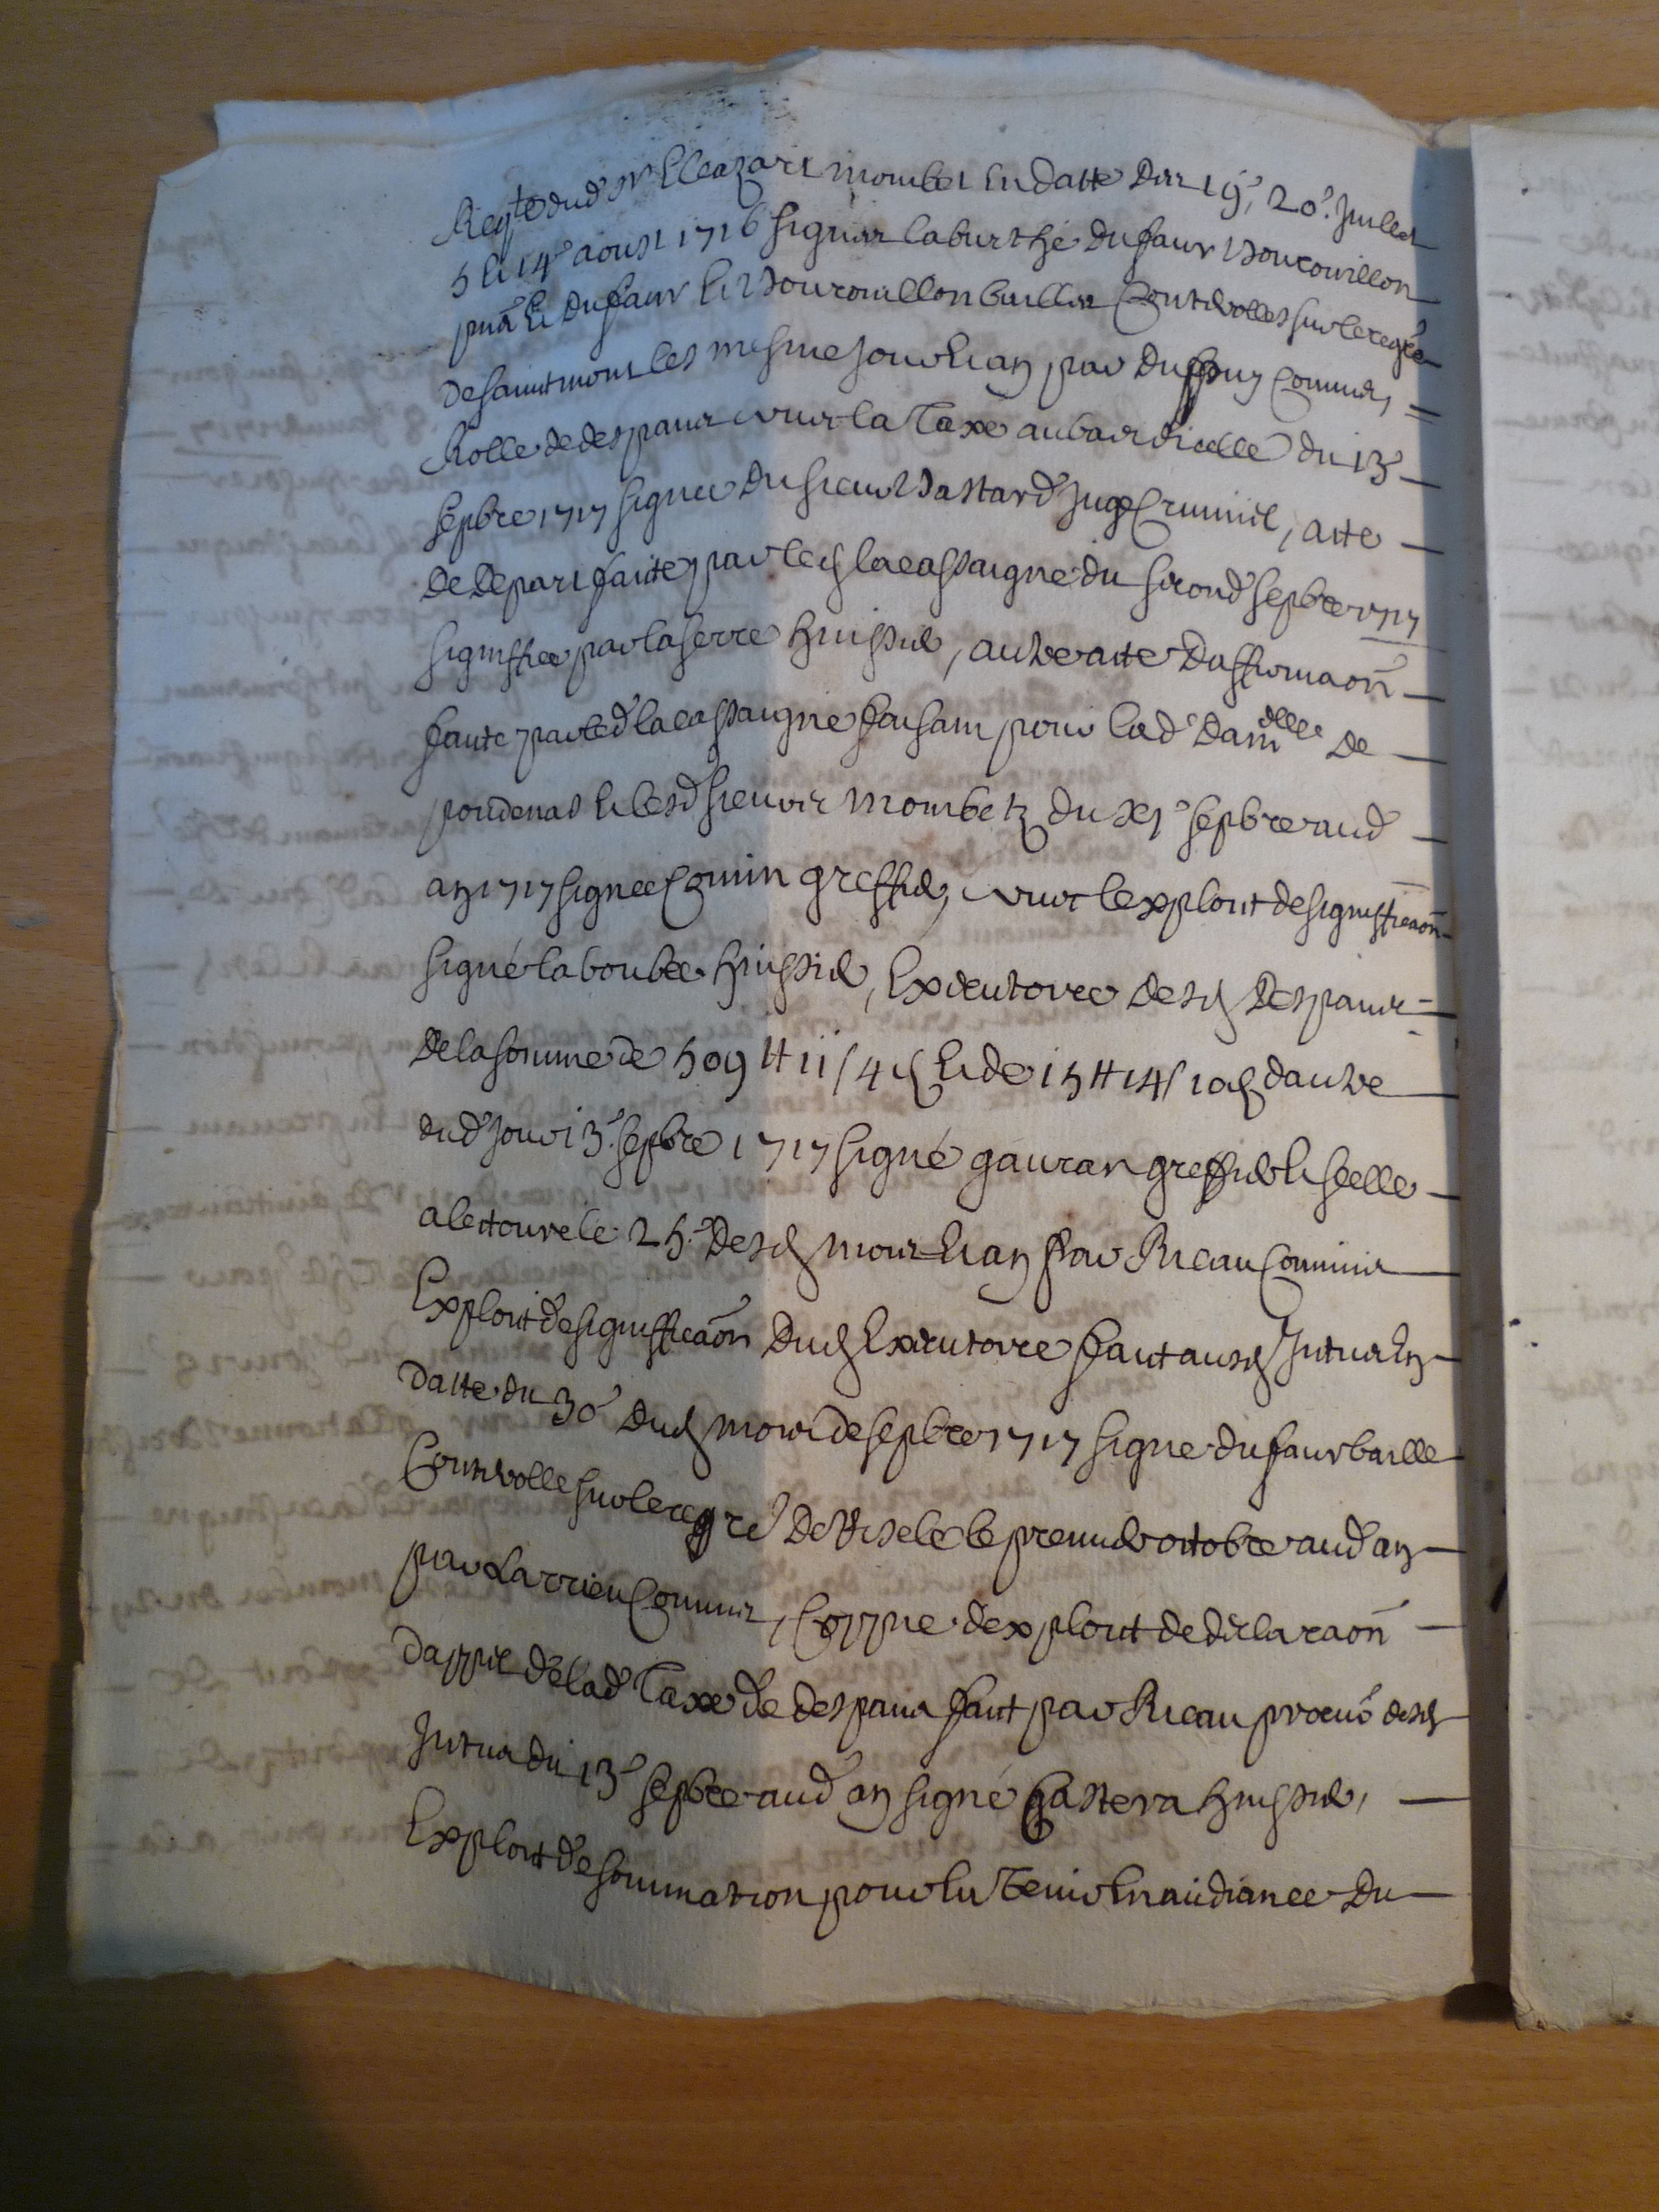 Reqte dud Sr Eleazart mombet En datte des 19e, 20e. Juillet
5 et 14e aoust 1716 signées laburthe dufaur Bourouillon
pnā Et dufaur Et Bourouillon bailles Controlles sur le regre
de saintmont les mesme jour Et an par Dupuy Commis,
Rolle de despans vuis la Taxe au bas dicelle du 13e
sepbre 1717 signee du sieur Bastard Juge Criminel, acte
de depart faite par led lacassaigne du second sepbre 1717
signiffiee par laserre huissier, autre acte daffirmaōn
faite par led lacassaigne faisant pour lad damlle de
poudenas Et lesd sieurs mombetz du XIe sepbre aud
an 1717 signee Comin greffier, vuis lexploit de signifficaōn
signé laboubee huissier, Executoire desd Despans
de la somme de 509 ₶ 11 s 4 d Et de 15 ₶ 14 s 10 d dautre
dud jour 13e. sepbre 1717 signé gauran greffier Et scelle
a lectoure le 25e. desd mois Et an par Rieau Commis
Exploit de signifficaōn Dud Executoire fait ausd Intues En
datte du 30e dud mois de sepbre 1717 signe dufaur baille
Controlle sur le regre de Viselle le premier octobre aud an
par Larrieu Commis, Coppie dexploit de declaraōn
dappel de lad Taxe de despans fait par Rieau procur desd
Intues du 13e sepbre aud an signé Castera huissier,
Exploit de sommation pour lu Tenir En audiance du